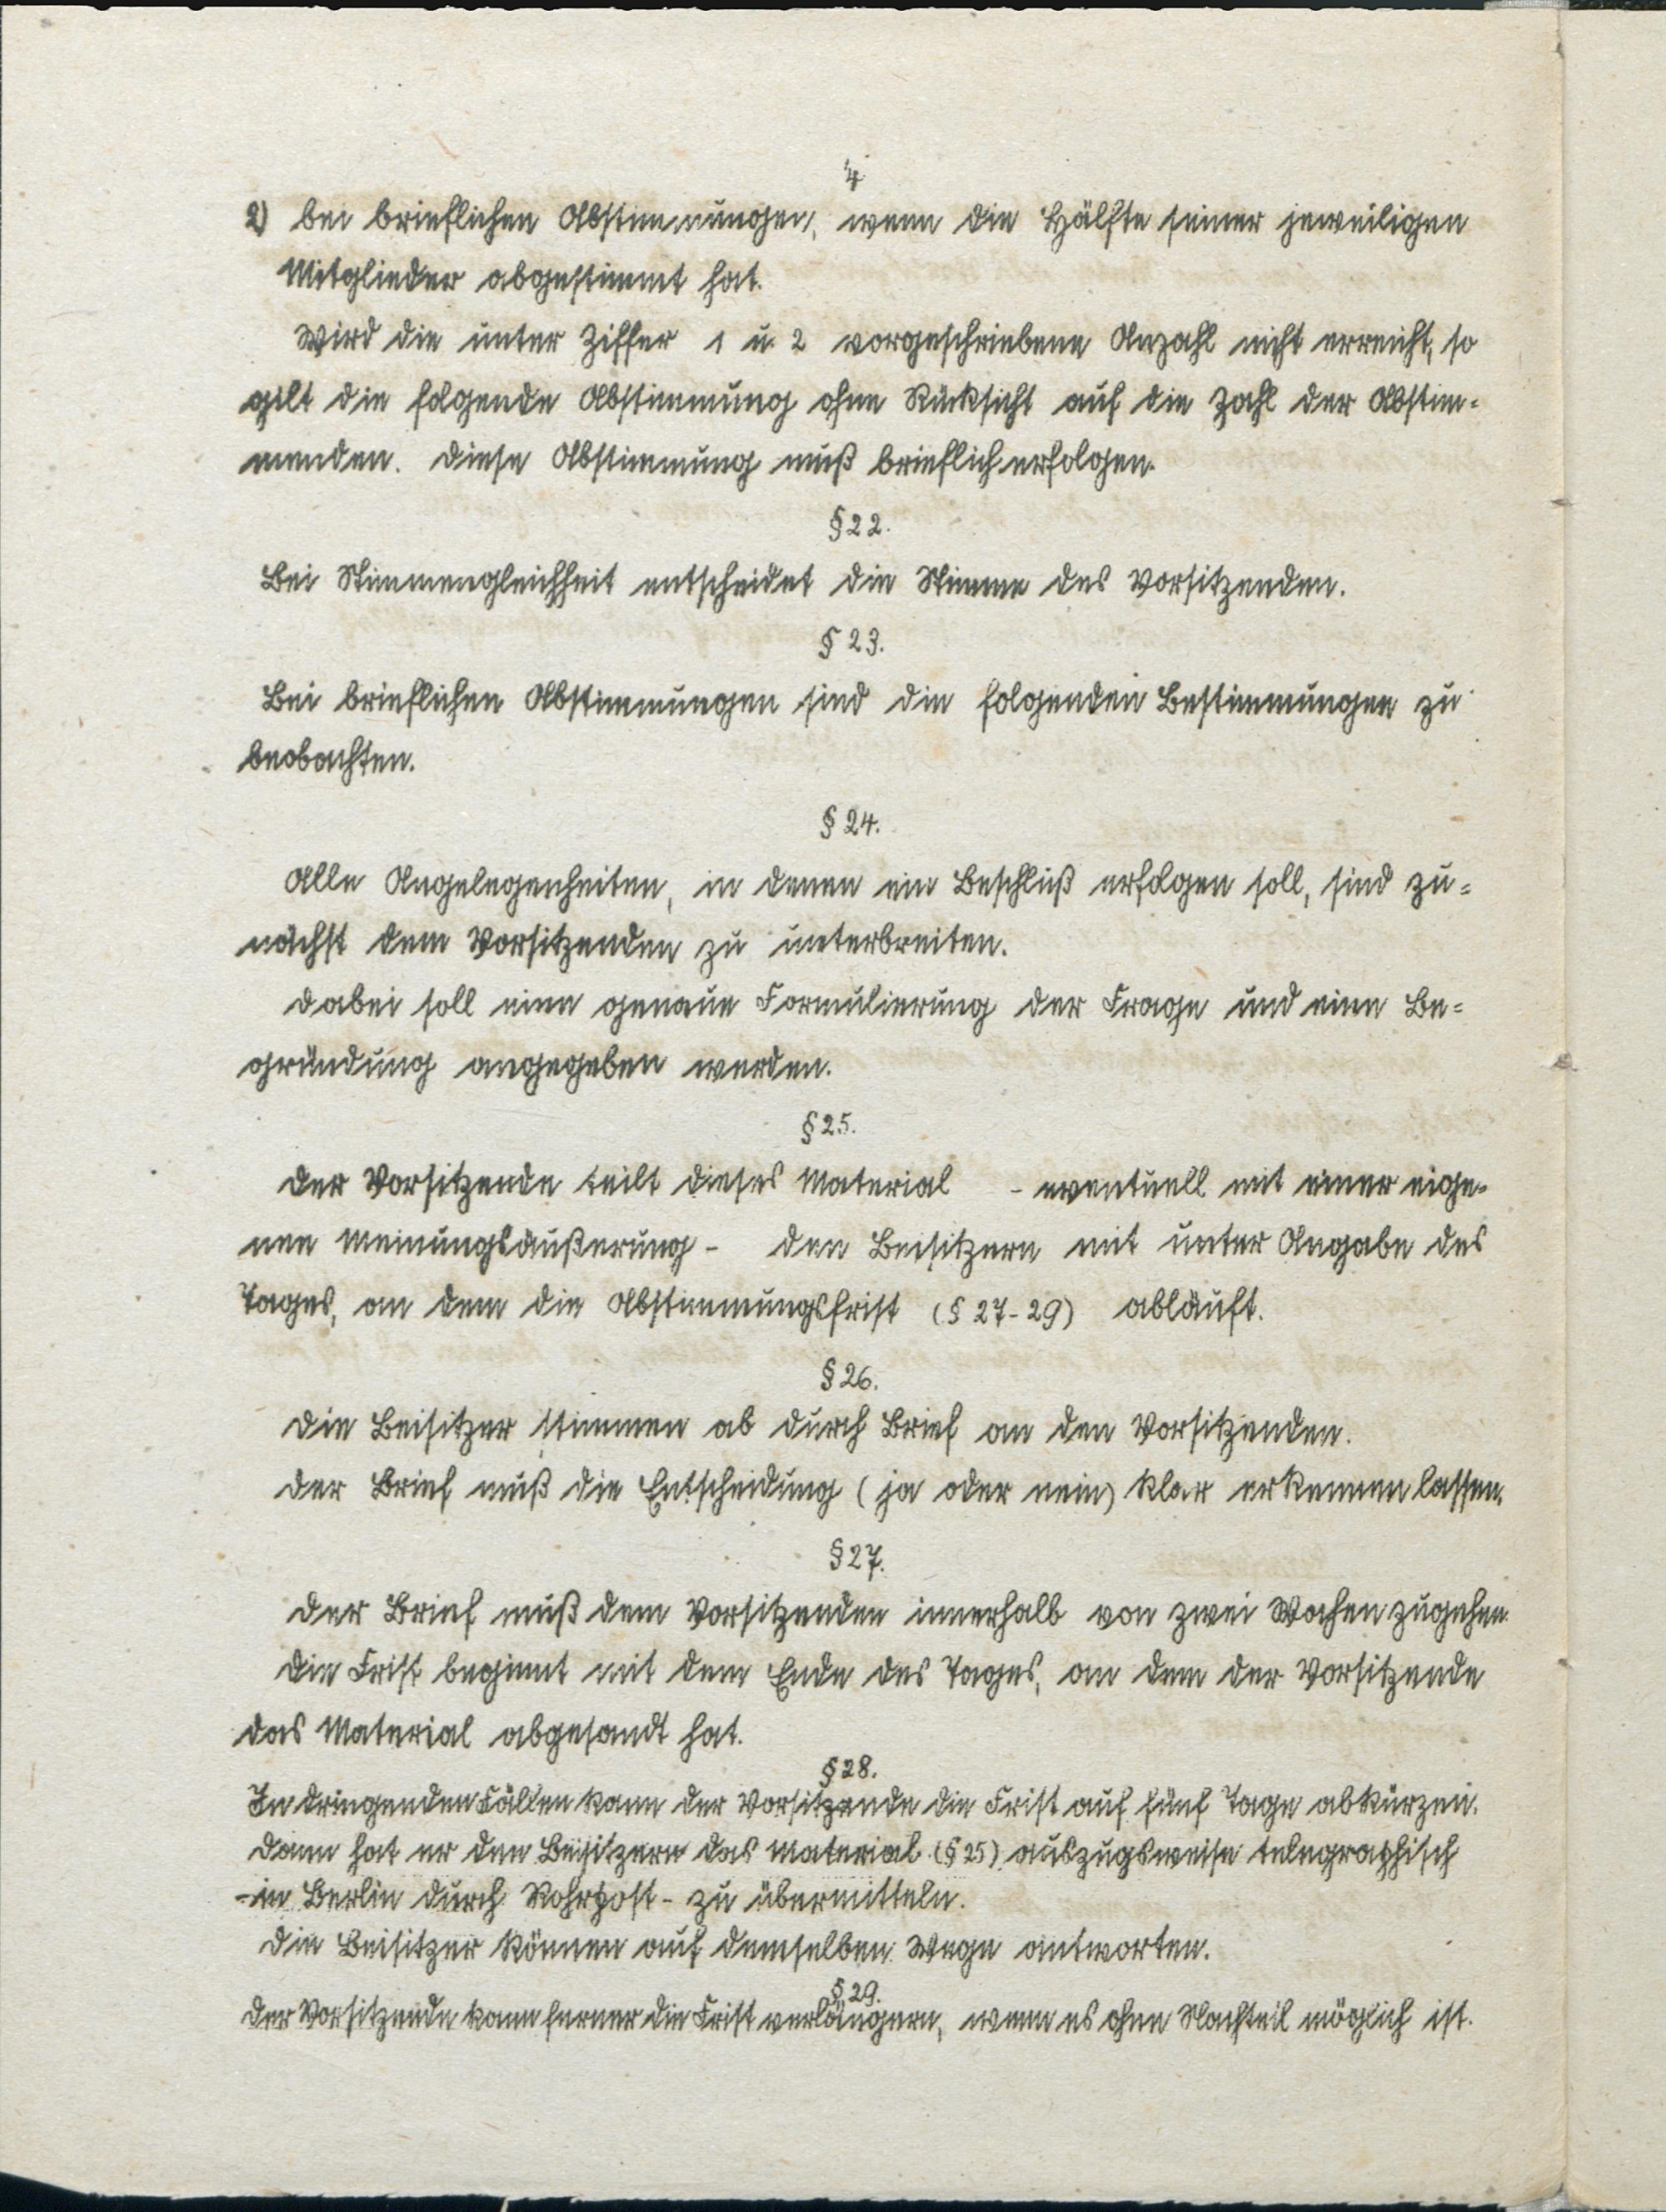 4
2) bei brieflichen Abstimmungen, wenn die Hälfte seiner jeweiligen
Mitglieder abgestimmt hat.
Wird die unter Ziffer 1 u. 2 vorgeschriebene Anzahl nicht erreicht, so
gilt die folgende Abstimmung ohne Rücksicht auf die Zahl der Abstim-
menden. Diese Abstimmung muß brieflich erfolgen.
§ 22.
Bei Stimmengleichheit entscheidet die Stimme des Vorsitzenden.
§ 23.
Bei brieflichen Abstimmungen sind die folgenden Bestimmungen zu
beobachten.
§ 24.
Alle Angelegenheiten, in denen ein Beschluß erfolgen soll, sind zu-
nächst dem Vorsitzenden zu unterbreiten.
Dabei soll eine genaue Formulierung der Frage und eine Be-
gründung angegeben werden.
§ 25.
Der Vorsitzende teilt dieses Material - eventuell mit einer eige-
nen Meinungsäußerung - den Beisitzern mit unter Angabe des
Tages, an dem die Abstimmungsfrist (§ 27-29) abläuft.
§ 26.
Die Beisitzer stimmen ab durch Brief an den Vorsitzenden.
Der Brief muß die Entscheidung (ja oder nein) klar erkennen lassen.
§ 27.
Der Brief muß dem Vorsitzenden innerhalb von zwei Wochen zugehen.
Die Frist beginnt mit dem Ende des Tages, an dem der Vorsitzende
das Material abgesandt hat.
§ 28.
In dringenden Fällen kann der Vorsitzende die Frist auf fünf Tage abkürzen.
Dann hat er den Beisitzern das Material (§ 25) auszugsweise telegraphisch
- in Berlin durch Rohrpost - zu übermitteln.
Die Beisitzer können auf demselben Wege antworten.
§ 29.
Der Vorsitzende kann ferner die Frist verlängern, wenn es ohne Nachteil möglich ist.